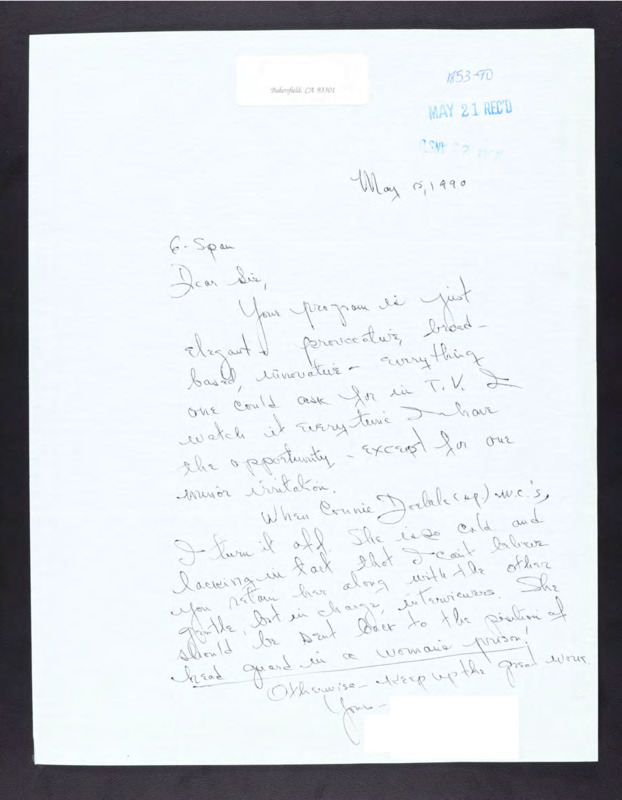 Bakersfield, CA 93301
1853-90
MAY 21 REC'D
May 15, 1990
C-Span
Dear Sir,
Your program is just
elegant & provocative, broad-
based, innovative - everything
one could ask for in T.V. I
watch it everytime I have
the opportunity - except for one
minor irritation.
When Connie (sp.) m.c.'s,
I turn it off. She is so cold and
lacking in tact that I can't believe
you retain her along with the other
gentle, but in charge, interviewers. She
should be sent back to the position of
head guard in a woman's prison!
Otherwise - keep up the great work.
Yours -